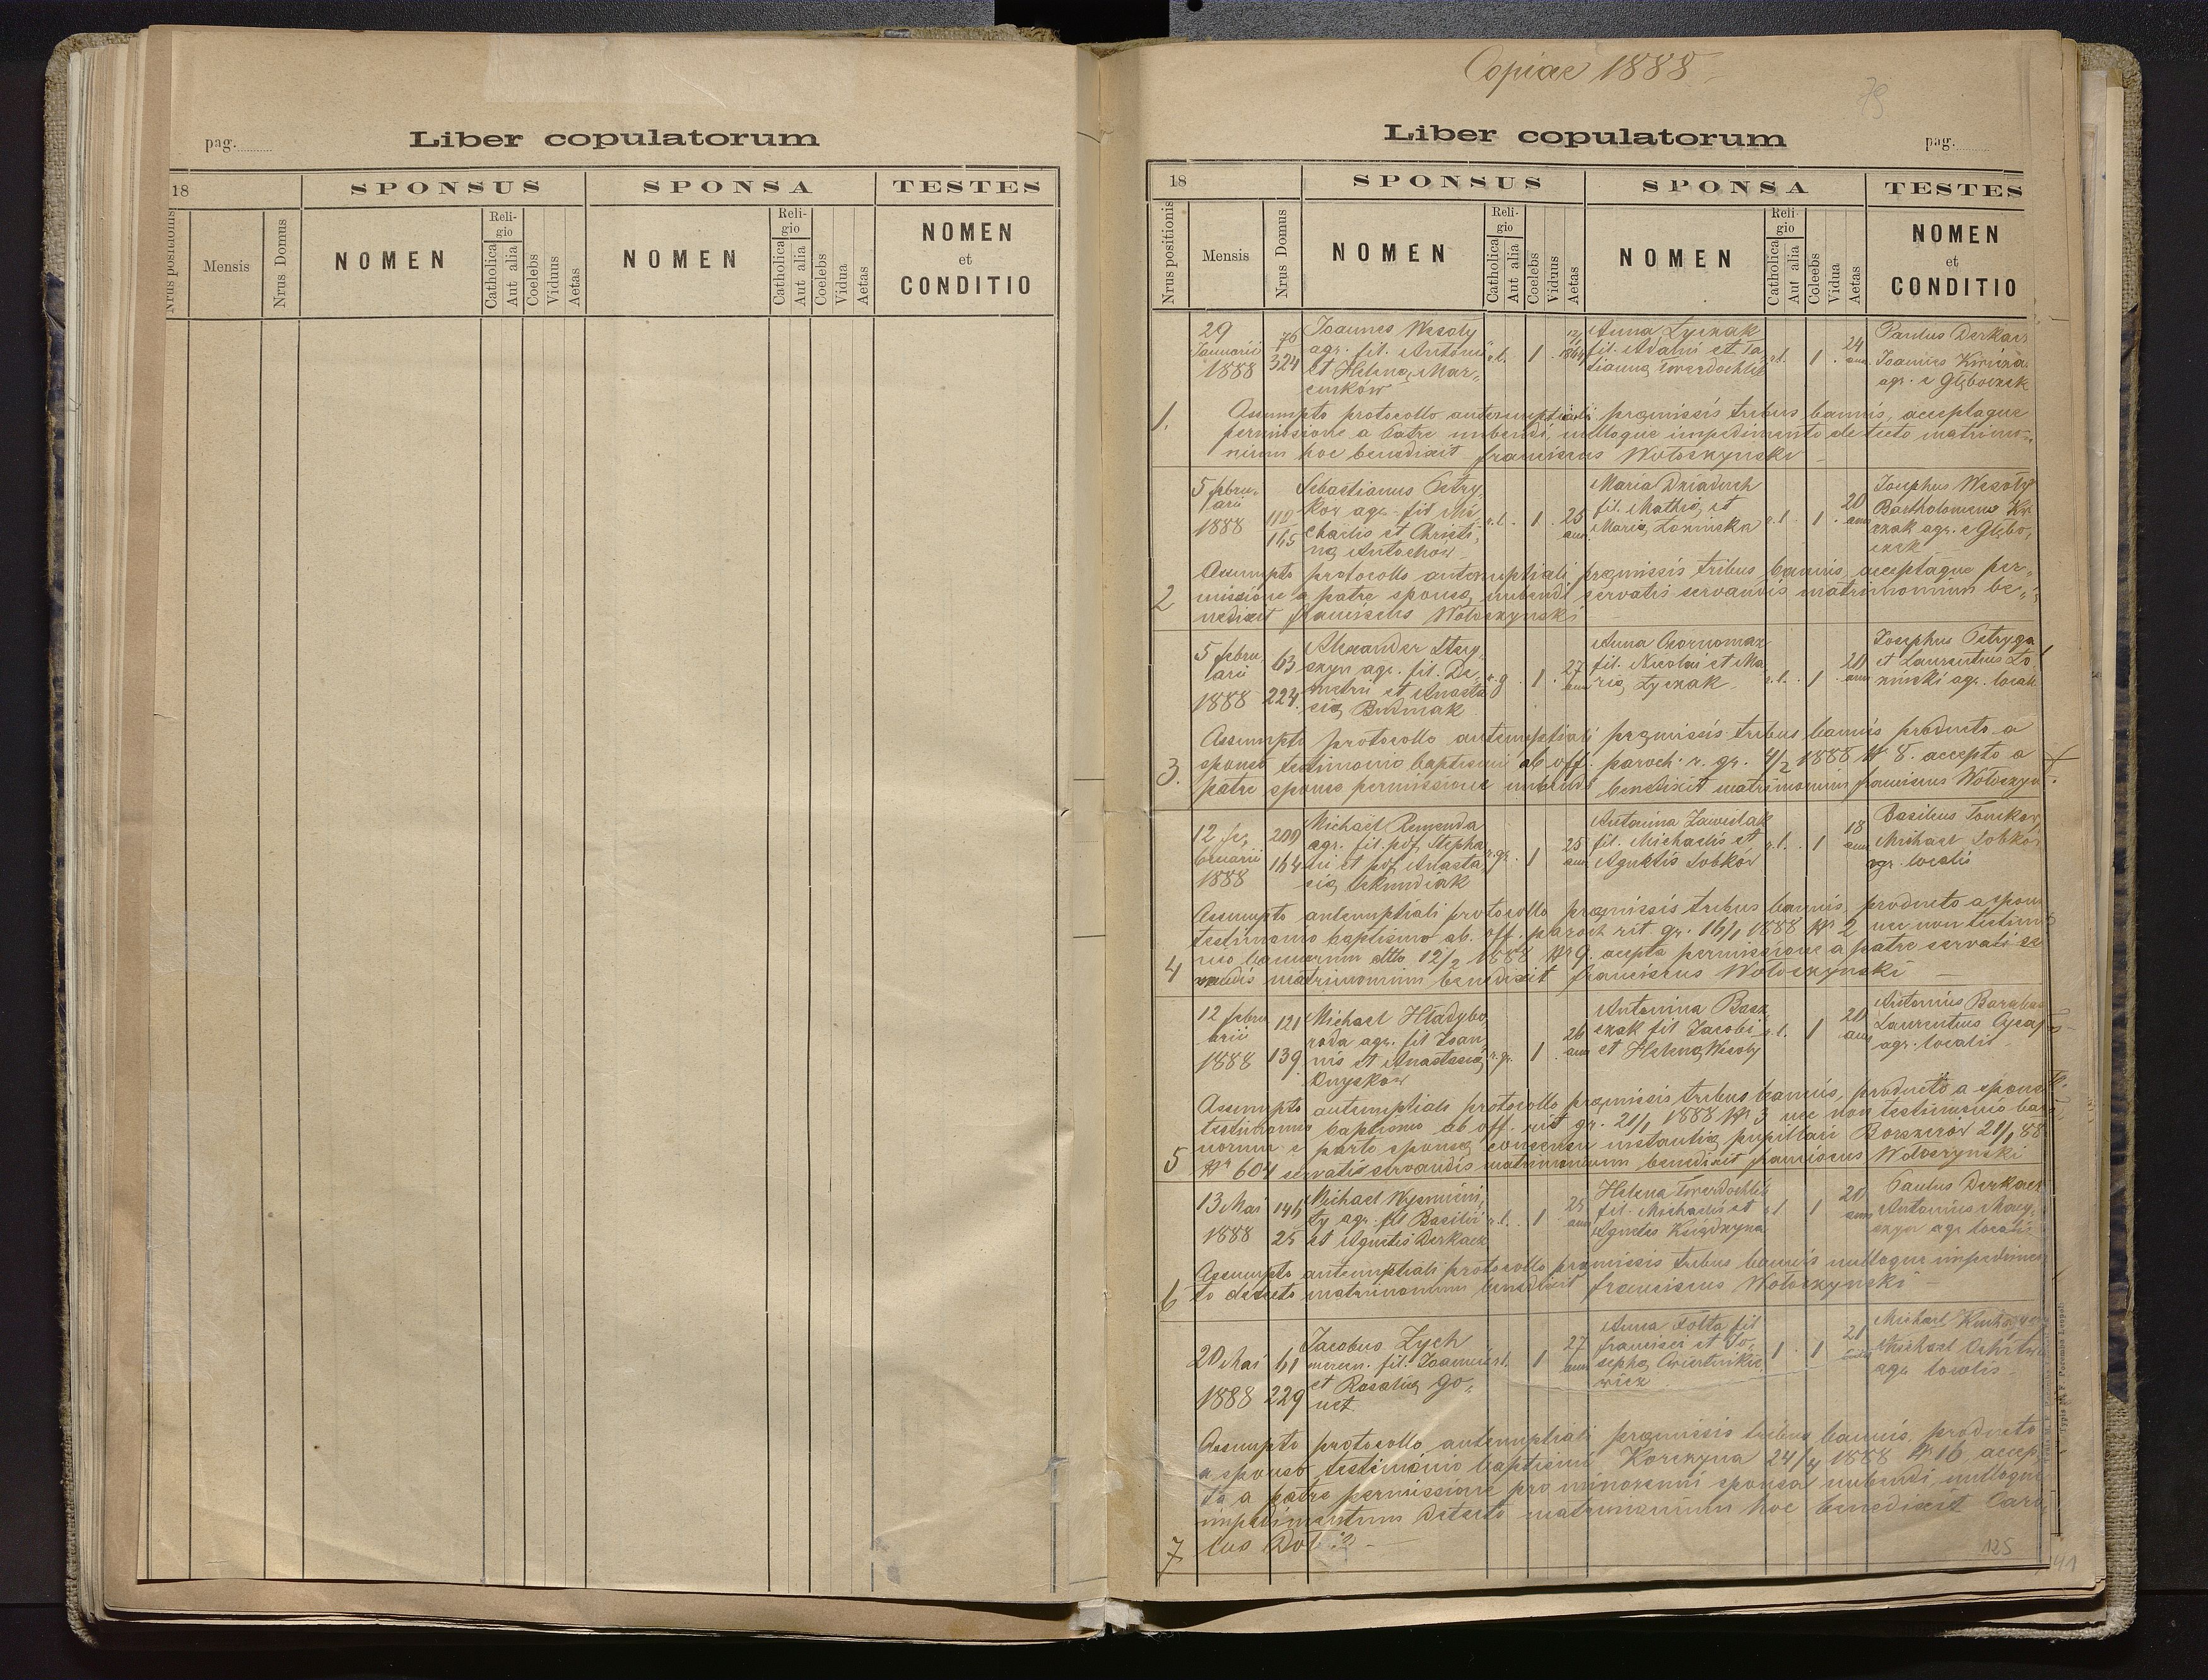 pag.
Liber copulatorum
18
SPONSUS
SPONSA
TESTES
Nrus positionis
Mensis
Nrus Domus
NOMEN
Religio
Catholica
Aut alia
Coelebs
Viduus
Aetas
NOMEN
Religio
Catholica
Aut alia
Coelebs
Vidua
Aetas
NOMEN
et
CONDITIO
Copiae 1888
79
Liber copulatorum
pag.
18
SPONSUS
SPONSA
TESTES
Nrus positionis
Mensis
Nrus Domus
NOMEN
Religio
Catholica
Aut alia
Coelebs
Viduus
Aetas
NOMEN
Religio
Catholica
Aut alia
Coleebs
Vidua
Aetas
NOMEN
et
CONDITIO
29 Januarii 1888
76 324
Joannes Wesoły
agr. fil. Antonii
et Helenę Mar„
cinków
r.l. 1 1864
Anna Łyczak
fil. Adami et Ta
tiannę Twardochleb
r.l. 1 24 ann
Paulus Derkacz
Joannes
agr. e Głęboczek
1.
Assumpto protocollo antenuptiali pręmissis tribus bannis, acceptaque
permissione a Patre nubendi, nulloque impedimento detecto matrimo„
nium hoc benedixit Franciscus Wołoszynski
5 Februarii 1888
112 165
Sebastianus Ostry„
kor agr. fil Mi
chaelis et Christi„
nę Antochów
r.l. 1 25 ann
Maria Dziaduch
fil. Mathię et
Marię Łozinska
r.l. 1 20 ann
Josephus Wesoły
Bartholomeus
agr. e Głębo„
czek
2
Assumpto protocollo antenuptiali pręmissis tribus bannis acceptaque per„
missione a patre sponsę nubendi servatis servandis matrimonium be„
nedixit Franciscus Wołoszynski
5 Februarii 1888
63 224
Alexander
agr. fil. De„
metrii et Anasta
się Budniak
r.g. 1 27 ann
Anna Czornomaz
fil. Nicolai et Ma
rię Łyczak
r.l. 1 20 ann
Josephus Ostryga
et Laurentius Ło
zinski agr. locali
3.
Assumpto protocollo antenuptiali pręmissis tribus bannis producto a
sponso testimonio baptismi ab off. paroch. r. gr. 4/2 1888 Nr 8. accepto a
patre sponsę permissione nubendi benedixit matrimonium Franciscus Wołoszyn
12 Fe„
bruarii
1888
200 164
Michael Remenda
agr. fil. pdf Stepha
ni et pdf Anasta„
się
r.gr. 1 25 ann
Antonina Zawislak
fil. Michaelis et
Agnetis Sobków
r.l. 1 18 ann
Basilius Tomków
Michael Sobków
agr. localis
4
Assumpto antenuptiali protocollo pręmissis tribus bannis, producto a spon
testimonio baptismo ab. off. paroch rit gr. 16/1 1888 Nr 2 nec non testimo
nio bannorum dtto 12/2 1888 Nr 9. acepta permissione a patre servatis se
vandis matrimonium benedixit Franciscus Wołoszynski
12 Febru
arii
1888
121 139
Michael Hładybo„
roda agr. fil Joan„
nis et Anastasię
Dnyskow
r.gr. 1 26 ann
Antonina
fil Jacobi
et Helenę Wesoły
r.l. 1 20 ann
Antonius
Laurentius
agr. localis
5
Assumpto antenuptiali protocollo pręmissis tribus bannis, producto a sponso
testimonio baptismo ab off. rit gr. 21/1 1888 Nr 3 nec non testimonio ban
norum e parte sponsę consensu instantię pupillari Borszczow 21/1 88
Nr 604 servatis servandis matrimonium benedixit Franciscus Wołoszynski
13 Mai
1888
146 25
Michael Wyszni
ty agr. fil Basilii
et Agnetis Derkacz
r.l. 1 25 ann
Helena Twardochleb
fil. Michaelis et
Agnetes
r.l 1 20 ann
Paulus Derkacz
Antonius
agr. locali
6
Assumpto antenuptiali protocollo pręmissis tribus bannis nulloque impedimen
to detecto matrimonium benedixit Franciscus Wołoszynski
20 Mai
1888
61 229
Jacobus Zych
mercen. fil. Joannis
et Rosalię Go„
net
r.l. 1 27 ann
Anna Fotta fil
Francisci et Jo„
sephę Cwiertnikie
wicz
1 1 21
Michael
Michael
agr localis
7
Assumpto protocollo antenuptiali pręmissis tribus bannis, producto
a sponso testimonio baptismi Korczyna 24/4 1888 Nr 16 accep„
ta a patre permissione pro minorenni sponsa nubendi, nulloque
impedimentum detecto matrimonium hoc benedixit Caro
lus
125
41